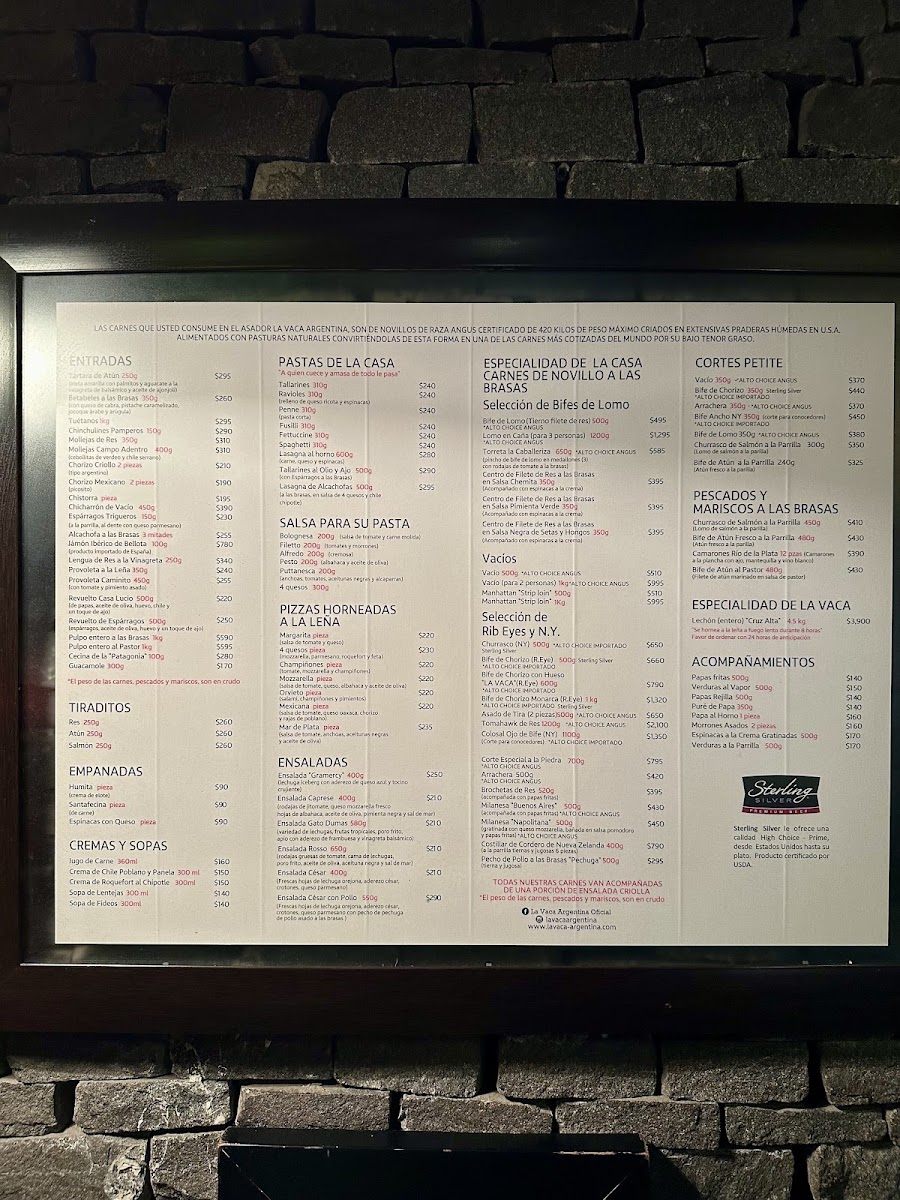 LAS CARNES QUE USTED CONSUME EN EL ASADOR LA VACA ARGENTINA, SON DE NOVILLOS DE RAZA ANGUS CERTIFICADO DE 420 KILOS DE PESO MÁXIMO CRIADOS EN EXTENSIVAS PRADERAS HÚMEDAS EN U.S.A.
ALIMENTADOS CON PASTURAS NATURALES CONVIRTIÉNDOLAS DE ESTA FORMA EN UNA DE LAS CARNES MÁS COTIZADAS DEL MUNDO POR SU BAJO TENOR GRASO.
ENTRADAS
Tártara de Atún 250g $295
(pasta amarilla con palmitos y aguacate a la
vinagreta de balsámico y aceite de ajonjolí)
Betabeles a las Brasas 350g $260
(con queso de cabra, pistache caramelizado,
jocoque árabe y arúgula)
Tuétanos 1kg $295
Chinchulines Pamperos 150g $290
Mollejas de Res 350g $310
Mollejas Campo Adentro 400g $310
(cebollitas de verdeo y chile serrano)
Chorizo Criollo 2 piezas $210
(tipo argentino)
Chorizo Mexicano 2 piezas $190
(picosito)
Chistorra pieza $195
Chicharrón de Vacío 450g $390
Espárragos Trigueros 150g $230
(a la parrilla, al dente con queso parmesano)
Alcachofa a las Brasas 3 mitades $255
Jámón Ibérico de Bellota 100g $780
(producto importado de España)
Lengua de Res a la Vinagreta 250g $340
Provoleta a la Leña 350g $240
Provoleta Caminito 450g $255
(con tomate y pimiento asado)
Revuelto Casa Lucio 500g $220
(de papas, aceite de oliva, huevo, chile y
un toque de ajo)
Revuelto de Espárragos 500g $250
(espárragos, aceite de oliva, huevo y un toque de ajo)
Pulpo entero a las Brasas 1kg $590
Pulpo entero al Pastor 1kg $595
Cecina de la "Patagonia" 100g $280
Guacamole 300g $170
*El peso de las carnes, pescados y mariscos, son en crudo
TIRADITOS
Res 250g $260
Atún 250g $260
Salmón 250g $260
EMPANADAS
Humita pieza $90
(crema de elote)
Santafecina pieza $90
(de carne)
Espinacas con Queso pieza $90
CREMAS Y SOPAS
Jugo de Carne 360ml $160
Crema de Chile Poblano y Panela 300 ml $150
Crema de Roquefort al Chipotle 300ml $150
Sopa de Lentejas 300 ml $140
Sopa de Fideos 300ml $140
PASTAS DE LA CASA
"A quien cuece y amasa de todo le pasa"
Tallarines 310g $240
Ravioles 310g $240
(relleno de queso ricota y espinacas)
Penne 310g $240
(pasta corta)
Fusilli 310g $240
Fettuccine 310g $240
Spaghetti 310g $240
Lasagna al horno 600g $280
(carne, queso y espinacas)
Tallarines al Olio y Ajo 500g $290
(con Espárragos a las Brasas)
Lasagna de Alcachofas 500g $295
(a las brasas, en salsa de 4 quesos y chile
chipotle)
SALSA PARA SU PASTA
Bolognesa 200g (salsa de tomate y carne molida)
Filetto 200g (tomates y morrones)
Alfredo 200g (cremosa)
Pesto 200g (albahaca y aceite de oliva)
Puttanesca 200g
(anchoas, tomates, aceitunas negras y alcaparras)
4 quesos 300g
PIZZAS HORNEADAS
A LA LEÑA
Margarita pieza $220
(salsa de tomate y queso)
4 quesos pieza $230
(mozzarella, parmesano, roquefort y feta)
Champiñones pieza $220
(tomate, mozzarella y champiñones)
Mozzarella pieza $220
(salsa de tomate, queso, albahaca y aceite de oliva)
Orvieto pieza $220
(salami, champiñones y pimientos)
Mexicana pieza $220
(salsa de tomate, queso oaxaca, chorizo
y rajas de poblano)
Mar de Plata pieza $235
(salsa de tomate, anchoas, aceitunas negras
y aceite de oliva)
ENSALADAS
Ensalada "Gramercy" 400g $250
(lechuga iceberg con aderezo de queso azul y tocino
crujiente)
Ensalada Caprese 400g $210
(rodajas de jitomate, queso mozzarella fresco
hojas de albahaca, aceite de oliva, pimienta negra y sal de mar)
Ensalada Gato Dumas 580g $210
(variedad de lechugas, frutas tropicales, poro frito,
apio con aderezo de frambuesa y vinagreta balsámico)
Ensalada Rosso 650g $210
(rodajas gruesas de tomate, cama de lechugas,
poro frito, aceite de oliva, aceituna negra y sal de mar)
Ensalada César 400g $210
(Frescas hojas de lechuga orejona, aderezo césar,
crotones, queso parmesano)
Ensalada César con Pollo 550g $290
(Frescas hojas de lechuga orejona, aderezo césar,
crotones, queso parmesano con pecho de pechuga
de pollo asado a las brasas )
ESPECIALIDAD DE LA CASA
CARNES DE NOVILLO A LAS
BRASAS
Selección de Bifes de Lomo
Bife de Lomo (Tierno filete de res) 500g $495
*ALTO CHOICE ANGUS
Lomo en Caña (para 3 personas) 1200g $1,295
*ALTO CHOICE ANGUS
Torreta la Caballeriza 650g *ALTO CHOICE ANGUS $585
(pincho de bife de lomo en medallones (3)
con rodajas de tomate a la brasas)
Centro de Filete de Res a las Brasas
en Salsa Chemita 350g $395
(Acompañado con espinacas a la crema)
Centro de Filete de Res a las Brasas
en Salsa Pimienta Verde 350g $395
(Acompañado con espinacas a la crema)
Centro de Filete de Res a las Brasas
en Salsa Negra de Setas y Hongos 350g $395
(Acompañado con espinacas a la crema)
Vacíos
Vacío 500g *ALTO CHOICE ANGUS $510
Vacío (para 2 personas) 1kg*ALTO CHOICE ANGUS $995
Manhattan "Strip loin" 500g $510
Manhattan "Strip loin" 1Kg $995
Selección de
Rib Eyes y N.Y.
Churrasco (NY) 500g *ALTO CHOICE IMPORTADO $650
Sterling Silver
Bife de Chorizo (R.Eye) 500g Sterling Silver $660
*ALTO CHOICE IMPORTADO
Bife de Chorizo con Hueso
"LA VACA"(R.Eye) 600g $790
*ALTO CHOICE IMPORTADO
Bife de Chorizo Monarca (R.Eye) 1 kg $1,320
*ALTO CHOICE IMPORTADO Sterling Silver
Asado de Tira (2 piezas)500g *ALTO CHOICE ANGUS $650
Tomahawk de Res 1200g *ALTO CHOICE ANGUS $2,100
Colosal Ojo de Bife (NY) 1100g $1,350
(Corte para conocedores) *ALTO CHOICE IMPORTADO
Corte Especial a la Piedra 700g $795
*ALTO CHOICE ANGUS
Arrachera 500g $420
*ALTO CHOICE ANGUS
Brochetas de Res 520g $395
(acompañada con papas fritas)
Milanesa "Buenos Aires" 500g $430
(acompañada con papas fritas) *ALTO CHOICE ANGUS
Milanesa "Napolitana" 500g $450
(gratinada con queso mozzarella, bañada en salsa pomodoro
y papas fritas) *ALTO CHOICE ANGUS
Costillar de Cordero de Nueva Zelanda 400g $790
(a la parrilla tiernas y jugosas 6 piezas)
Pecho de Pollo a las Brasas "Pechuga" 500g $295
(tierna y jugosa)
TODAS NUESTRAS CARNES VAN ACOMPAÑADAS
DE UNA PORCIÓN DE ENSALADA CRIOLLA
*El peso de las carnes, pescados y mariscos, son en crudo
La Vaca Argentina Oficial
lavacaargentina
www.lavaca-argentina.com
CORTES PETITE
Vacío 350g -*ALTO CHOICE ANGUS $370
Bife de Chorizo 350g Sterling Silver $440
*ALTO CHOICE IMPORTADO
Arrachera 350g -*ALTO CHOICE ANGUS $370
Bife Ancho NY 350g (corte para conocedores) $450
*ALTO CHOICE IMPORTADO
Bife de Lomo 350g *ALTO CHOICE ANGUS $380
Churrasco de Salmón a la Parrilla 300g $350
(Lomo de salmón a la parrilla)
Bife de Atún a la Parrilla 240g $325
(Atún fresco a la parrilla)
PESCADOS Y
MARISCOS A LAS BRASAS
Churrasco de Salmón a la Parrilla 450g $410
(Lomo de salmón a la parrilla)
Bife de Atún Fresco a la Parrilla 480g $430
(Atún fresco a la parrilla)
Camarones Río de la Plata 12 pzas (Camarones $390
a la plancha con ajo, mantequilla y vino blanco)
Bife de Atún al Pastor 480g $430
(Filete de atún marinado en salsa de pastor)
ESPECIALIDAD DE LA VACA
Lechón (entero) "Cruz Alta" 4.5 kg $3,900
"Se hornea a la leña a fuego lento durante 8 horas"
Favor de ordenar con 24 horas de anticipación
ACOMPAÑAMIENTOS
Papas fritas 500g $140
Verduras al Vapor 500g $150
Papas Rejilla 500g $140
Puré de Papa 350g $140
Papa al Horno 1 pieza $160
Morrones Asados 2 piezas $160
Espinacas a la Crema Gratinadas 500g $170
Verduras a la Parrilla 500g $170
Sterling
SILVER
PREMIUM BEEF
Sterling Silver le ofrece una
calidad High Choice - Prime,
desde Estados Unidos hasta su
plato. Producto certificado por
USDA.